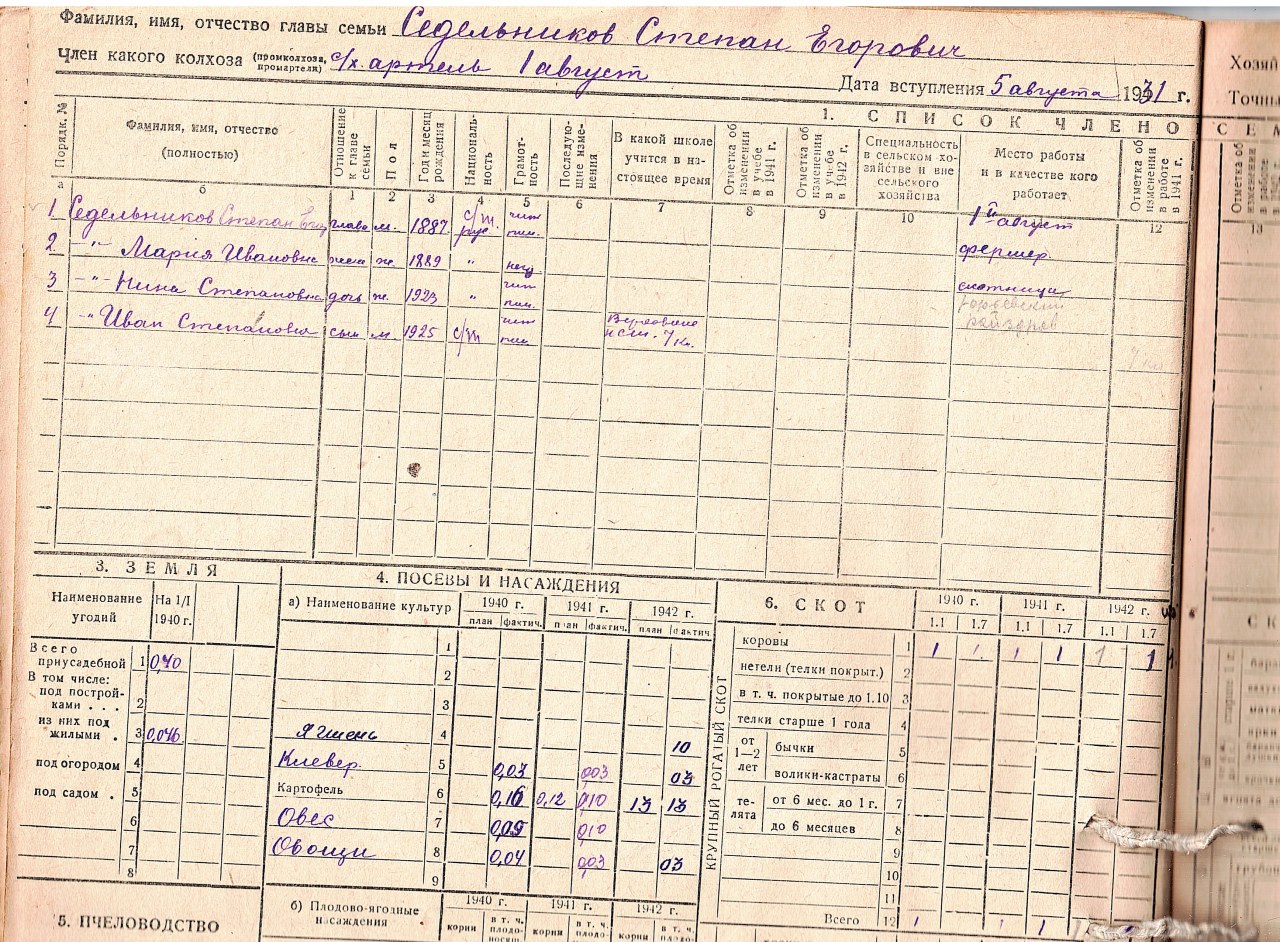 Фамилия, имя, отчество главы семьи Седельников Степан Егорович
Член какого колхоза (промколхоза, промартели) с/х. артель 1 август
Дата вступления 5 августа 1931 г.
1. СПИСОК ЧЛЕНО
СЕМ
Хозяй
Точны
Порядк. №
Фамилия, имя, отчество (полностью)
Отношение к главе семьи
Пол
Год и месяц рождения
Националь-ность
Грамот-ность
Последую-щие изме-нения
В какой школе учится в на-стоящее время
Отметка об изменении в учебе в 1941 г.
Отметка об изменении в учебе в 1942 г.
Специальность в сельском хо-зяйстве и вне сельского хозяйства
Место работы и в качестве кого работает
Отметка об изменении в работе в 1941 г.
Отметка об изменении
а б 1 2 3 4 5 6 7 8 9 10 12 13
1 Седельников Степан Егор глава м. 1887 с/т. рус. чит пис. 1й август
2 -"- Мария Ивановна жена ж. 1889 " негр фермер.
3 -"- Нина Степановна дочь ж. 1923 " чит пис. скотница
4 -"- Иван Степанович сын м 1925 с/т чит пис. нсш. 7 кл.
райздрав
3. ЗЕМЛЯ
Наименование угодий
На 1/I 1940 г.
Всего приусадебной 1 0,40
В том числе:
под построй-ками . . . 2
из них под жилыми . 3 0,046
под огородом 4
под садом . 5
6
7
8
5. ПЧЕЛОВОДСТВО
4. ПОСЕВЫ И НАСАЖДЕНИЯ
а) Наименование культур
1940 г. 1941 г. 1942 г.
план фактич. план фактич. план фактич.
1
2
3
Ячмень 4 10
Клевер. 5 0,03 0,03 03
Картофель 6 0,16 0,12 0,10 13 13
Овес 7 0,09 0,10
Овощи 8 0,04 0,03 03
9
б) Плодово-ягодные насаждения
1940 г. 1941 г. 1942 г.
корни в т. ч. плодо-носящ. корни в т. ч. плодо- корни в т. ч. плодо-
6. СКОТ
1940 г. 1941 г. 1942 г.
1.1 1.7 1.1 1.7 1.1 1.7
КРУПНЫЙ РОГАТЫЙ СКОТ
коровы 1 1 1 1 1 1 1
нетели (телки покрыт.) 2
в т. ч. покрытые до 1.10 3
телки старше 1 года 4
от 1—2 лет
бычки 5
волики-кастраты 6
те-лята
от 6 мес. до 1 г. 7
до 6 месяцев 8
9
10
11
Всего 12 1 1 1
СК